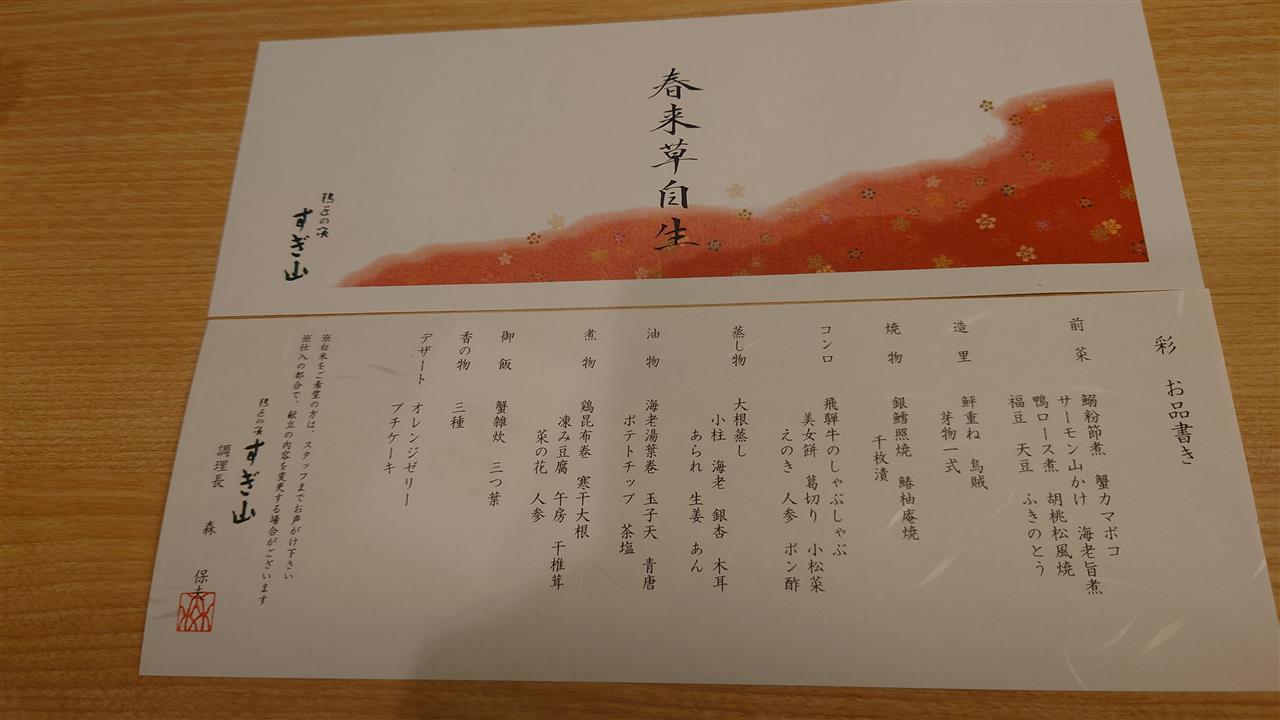 春来草自生
すぎ山
彩 お品書き
前菜 鰯粉節煮 蟹カマボコ
サーモン山かけ 海老旨煮
鴨ロース煮 胡桃松風焼
福豆 天豆 ふきのとう
造里 鮃重ね 烏賊
芽物一式
焼物 銀鱈照焼 鰆柚庵焼
千枚漬
コンロ 飛騨牛のしゃぶしゃぶ
美女餅 葛切り 小松菜
えのき 人参 ポン酢
蒸し物 大根蒸し
小柱 海老 銀杏 木耳
あられ 生姜 あん
油物 海老湯葉巻 玉子天 青唐
ポテトチップ 茶塩
煮物 鶏昆布巻 寒干大根
凍み豆腐 午房 干椎茸
菜の花 人参
御飯 蟹雑炊 三つ葉
香の物 三種
デザート オレンジゼリー
プチケーキ
※白米をご希望の方は、スタッフまでお声がけ下さい
※仕入の都合で、献立の内容を変更する場合がございます
すぎ山
調理長 森 保夫